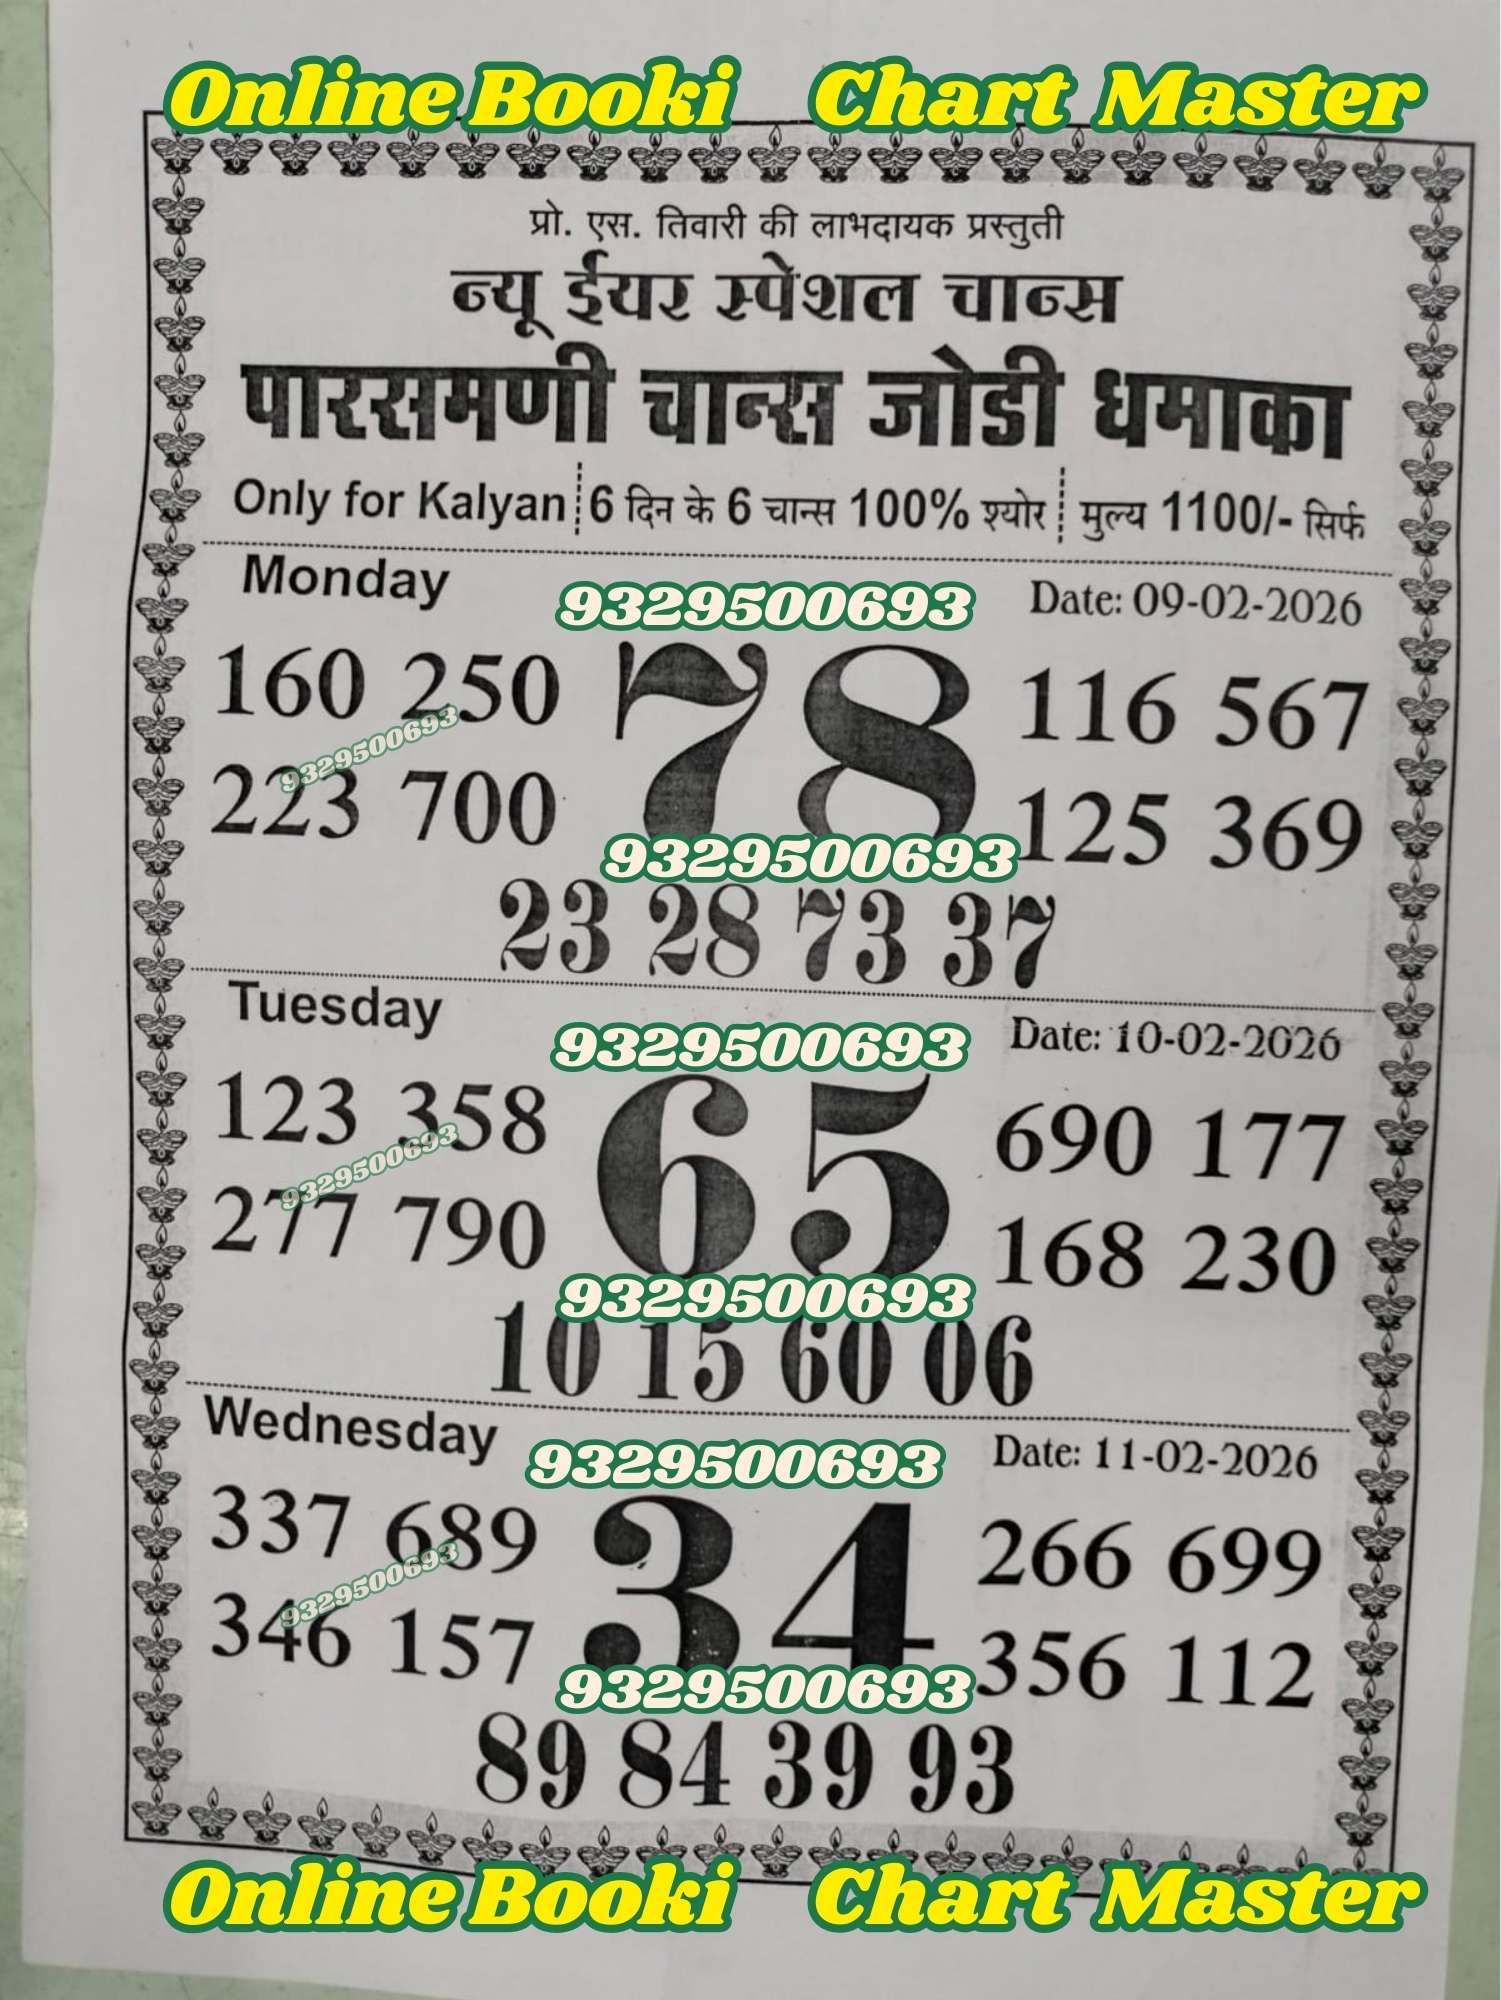 Online Booki Chart Master
प्रो. एस. तिवारी की लाभदायक प्रस्तुती
न्यू ईयर स्पेशल चान्स
पारसमणी चान्स जोडी धमाका
Only for Kalyan 6 दिन के 6 चान्स 100% श्योर मुल्य 1100/- सिर्फ
Monday 9329500693 Date: 09-02-2026
160 250 78 116 567
9329500693
223 700 125 369
9329500693
23 28 73 37
Tuesday 9329500693 Date: 10-02-2026
123 358 65 690 177
9329500693
277 790 168 230
9329500693
10 15 60 06
Wednesday 9329500693 Date: 11-02-2026
337 689 34 266 699
9329500693
346 157 356 112
9329500693
89 84 39 93
Online Booki Chart Master